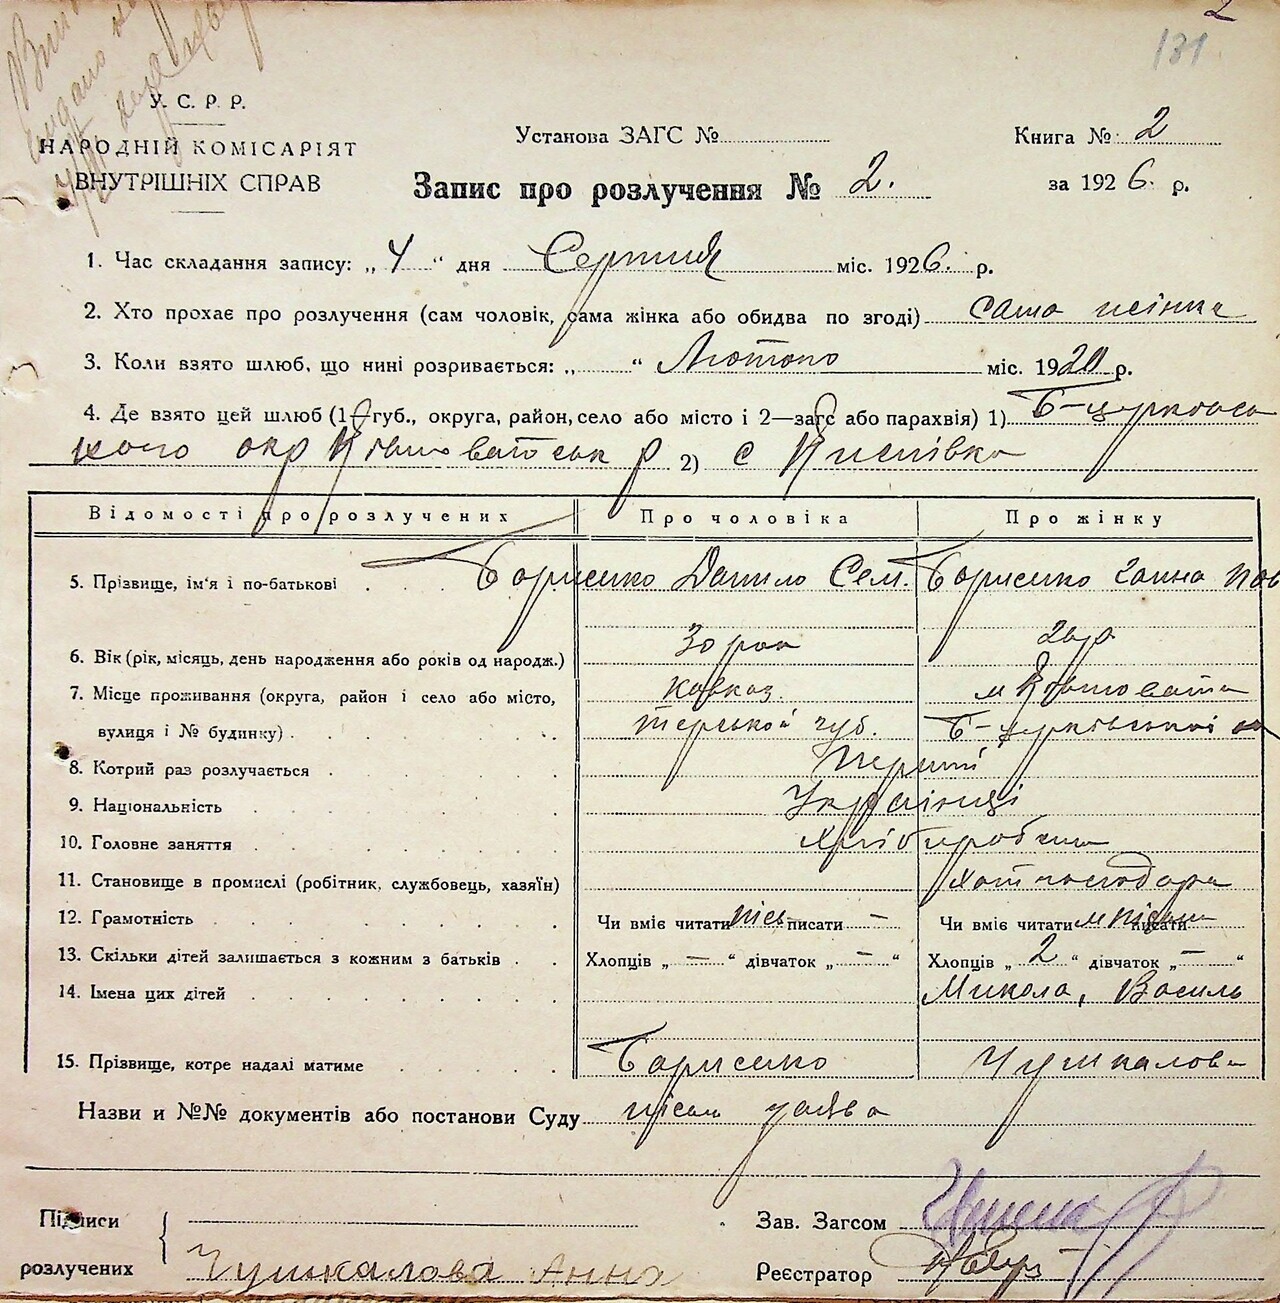 2
131
У. С. Р. Р.
НАРОДНІЙ КОМІСАРІЯТ
ВНУТРІШНІХ СПРАВ
Установа ЗАГС №
Книга № 2
Запис про розлучення № 2.
за 1926. р.
1. Час складання запису: „4“ дня Серпня міс. 1926. р.
2. Хто прохає про розлучення (сам чоловік, сама жінка або обидва по згоді) сама жінка
3. Коли взято шлюб, що нині розривається: „ “ Лютого міс. 1920 р.
4. Де взято цей шлюб (1—губ., округа, район, село або місто і 2—загс або парахвія) 1) Б-церковсь
кого окр р 2) с
Відомості про розлучених Про чоловіка Про жінку
5. Прізвище, ім'я і по-батькові Борисенко Данило Сем. Борисенко Ганна Пов
6. Вік (рік, місяць, день народження або років од народж.) 30 рок
7. Місце проживання (округа, район і село або місто, Кавказ. м
вулиця і № будинку) терської губ. Б-церківської
8. Котрий раз розлучається Перший
9. Національність Українці
10. Головне заняття Хлібороби
11. Становище в промислі (робітник, службовець, хазяїн)
12. Грамотність Чи вміє читати писати — Чи вміє читати писати
13. Скільки дітей залишається з кожним з батьків Хлопців „—“ дівчаток „—“ Хлопців „2“ дівчаток „—“
14. Імена цих дітей Микола, Василь
15. Прізвище, котре надалі матиме Борисенко Чушкалова
Назви и №№ документів або постанови Суду заява
Підписи
розлучених Чушкалова Анна
Зав. Загсом
Реєстратор